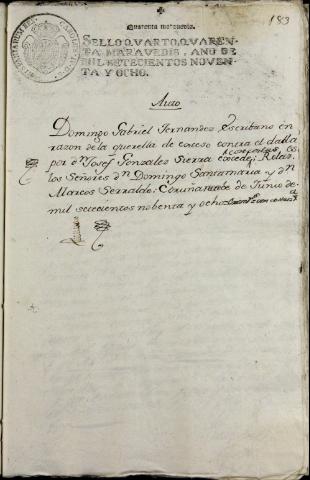 183
Quarenta maravedis.
SELLO QVARTO, QVAREN-
TA MARAVEDIS, AÑO DE
MIL SETECIENTOS NOVEN-
TA Y OCHO.
Auto
Domingo Gabriel Fernandez Escribano en
razon de la querella de exceso contra el dada
por dn Josef Gonzalez Sierra
los Señores dn Domingo Santamaria y dn
Marcos Serralde: Coruña de Junio de
mil setecientos nobenta y ocho